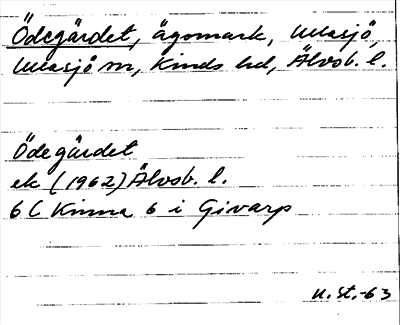 Ödegärdet, ägomark, Ullasjö,
Ullasjö sn, Kinds hd, Älvsb. l.
Ödegärdet
ek (1962) Älvsb. l.
6 C Kinna 6 i Givarp
n. st. -63